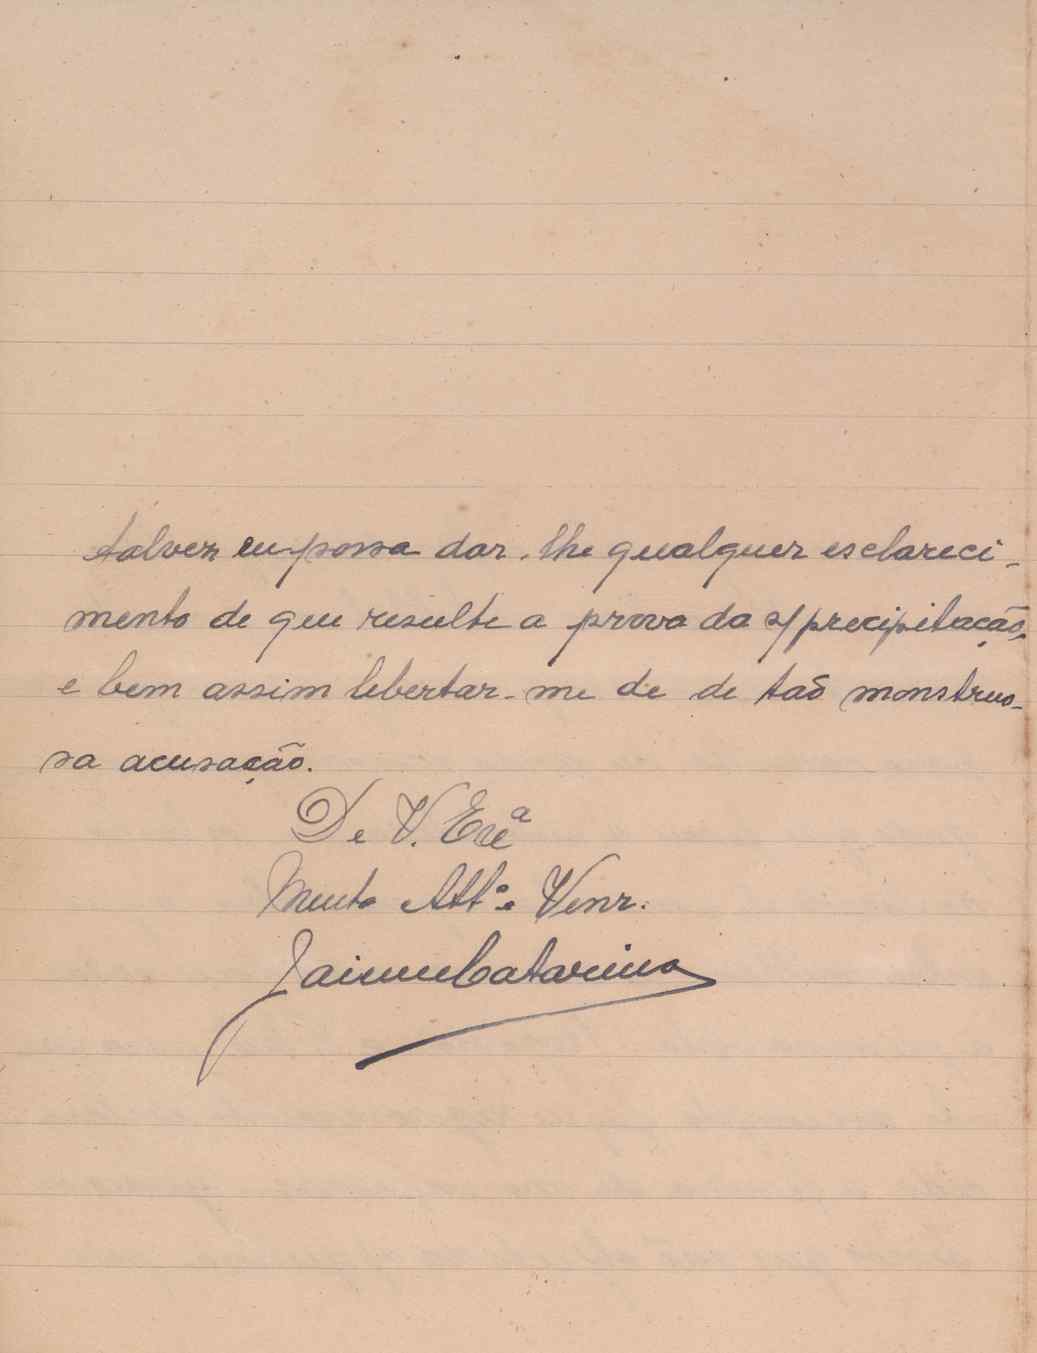 talvez eu possa dar-lhe qualquer esclareci-
mento de que resulte a prova da s/precipitação,
e bem assim libertar-me de de taõ monstruo-
sa acusação.
De V. Excª
Muito Attº e Venr.
Jaime Catarino